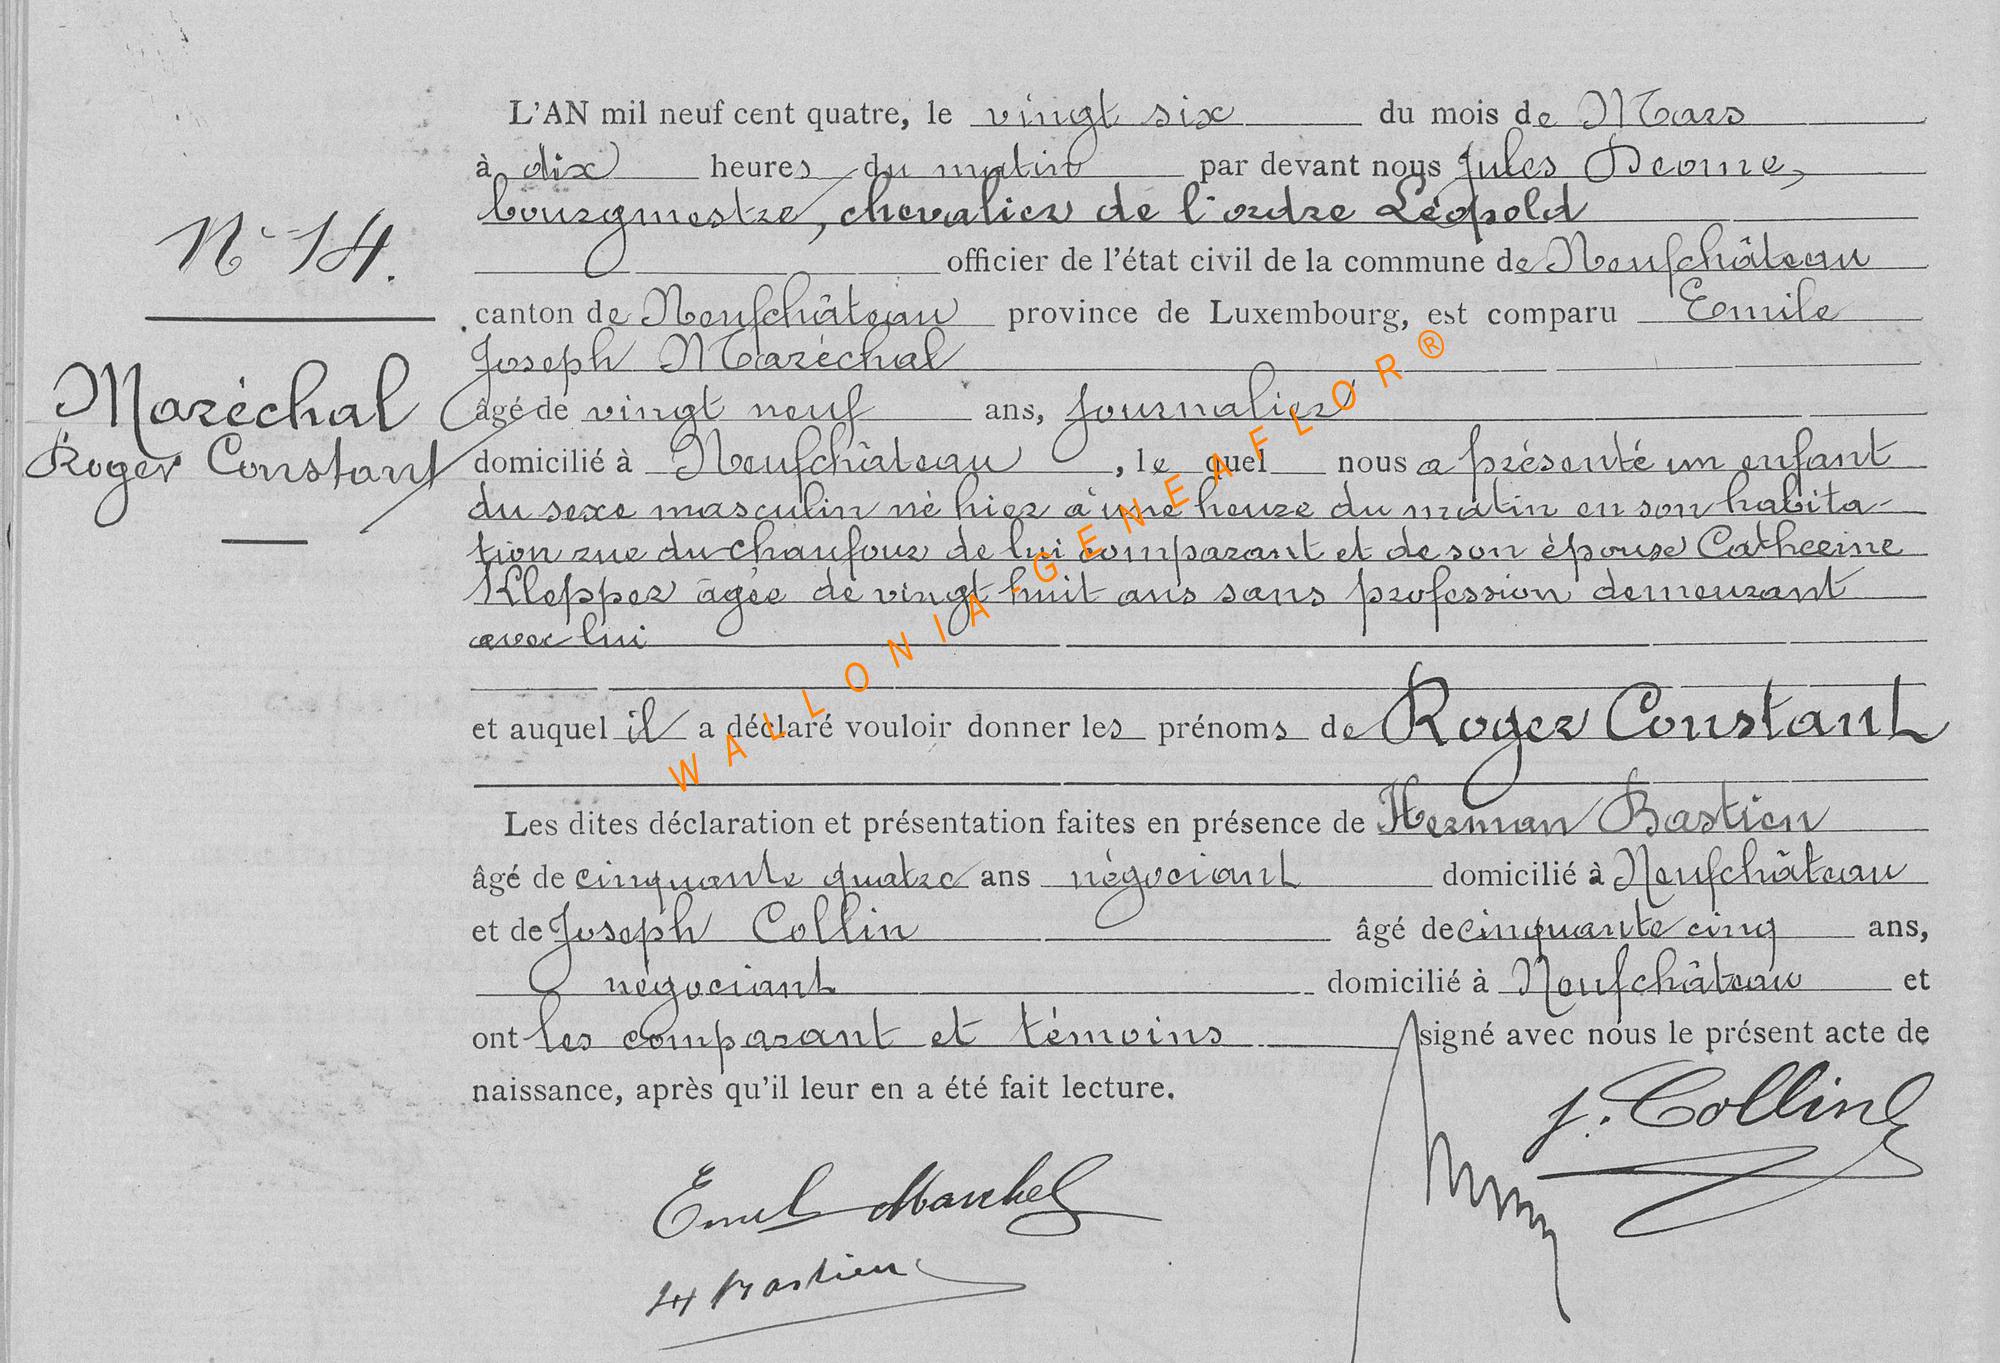 L'AN mil neuf cent quatre, le vingt six du mois de Mars
à dix heures du matin par devant nous Jules Deome,
bourgmestre, chevalier de l'ordre Léopold
N° 14.
officier de l'état civil de la commune de Neufchâteau
canton de Neufchâteau province de Luxembourg, est comparu Emile
Joseph Maréchal
Maréchal
Roger Constant
âgé de vingt neuf ans, journalier
domicilié à Neufchâteau, le quel nous a présenté un enfant
du sexe masculin né hier à une heure du matin en son habita-
tion rue du chaufour de lui comparant et de son épouse Catherine
Klepper âgée de vingt huit ans sans profession demeurant
avec lui
et auquel il a déclaré vouloir donner les prénoms de Roger Constant
Les dites déclaration et présentation faites en présence de Herman Bastien
âgé de cinquante quatre ans négociant domicilié à Neufchâteau
et de Joseph Collin âgé de cinquante cinq ans,
négociant domicilié à Neufchâteau et
ont les comparant et témoins signé avec nous le présent acte de
naissance, après qu'il leur en a été fait lecture.
J. Collin
Emil Marchal
H Bastien
WALLONIA-GENEAFLOR®